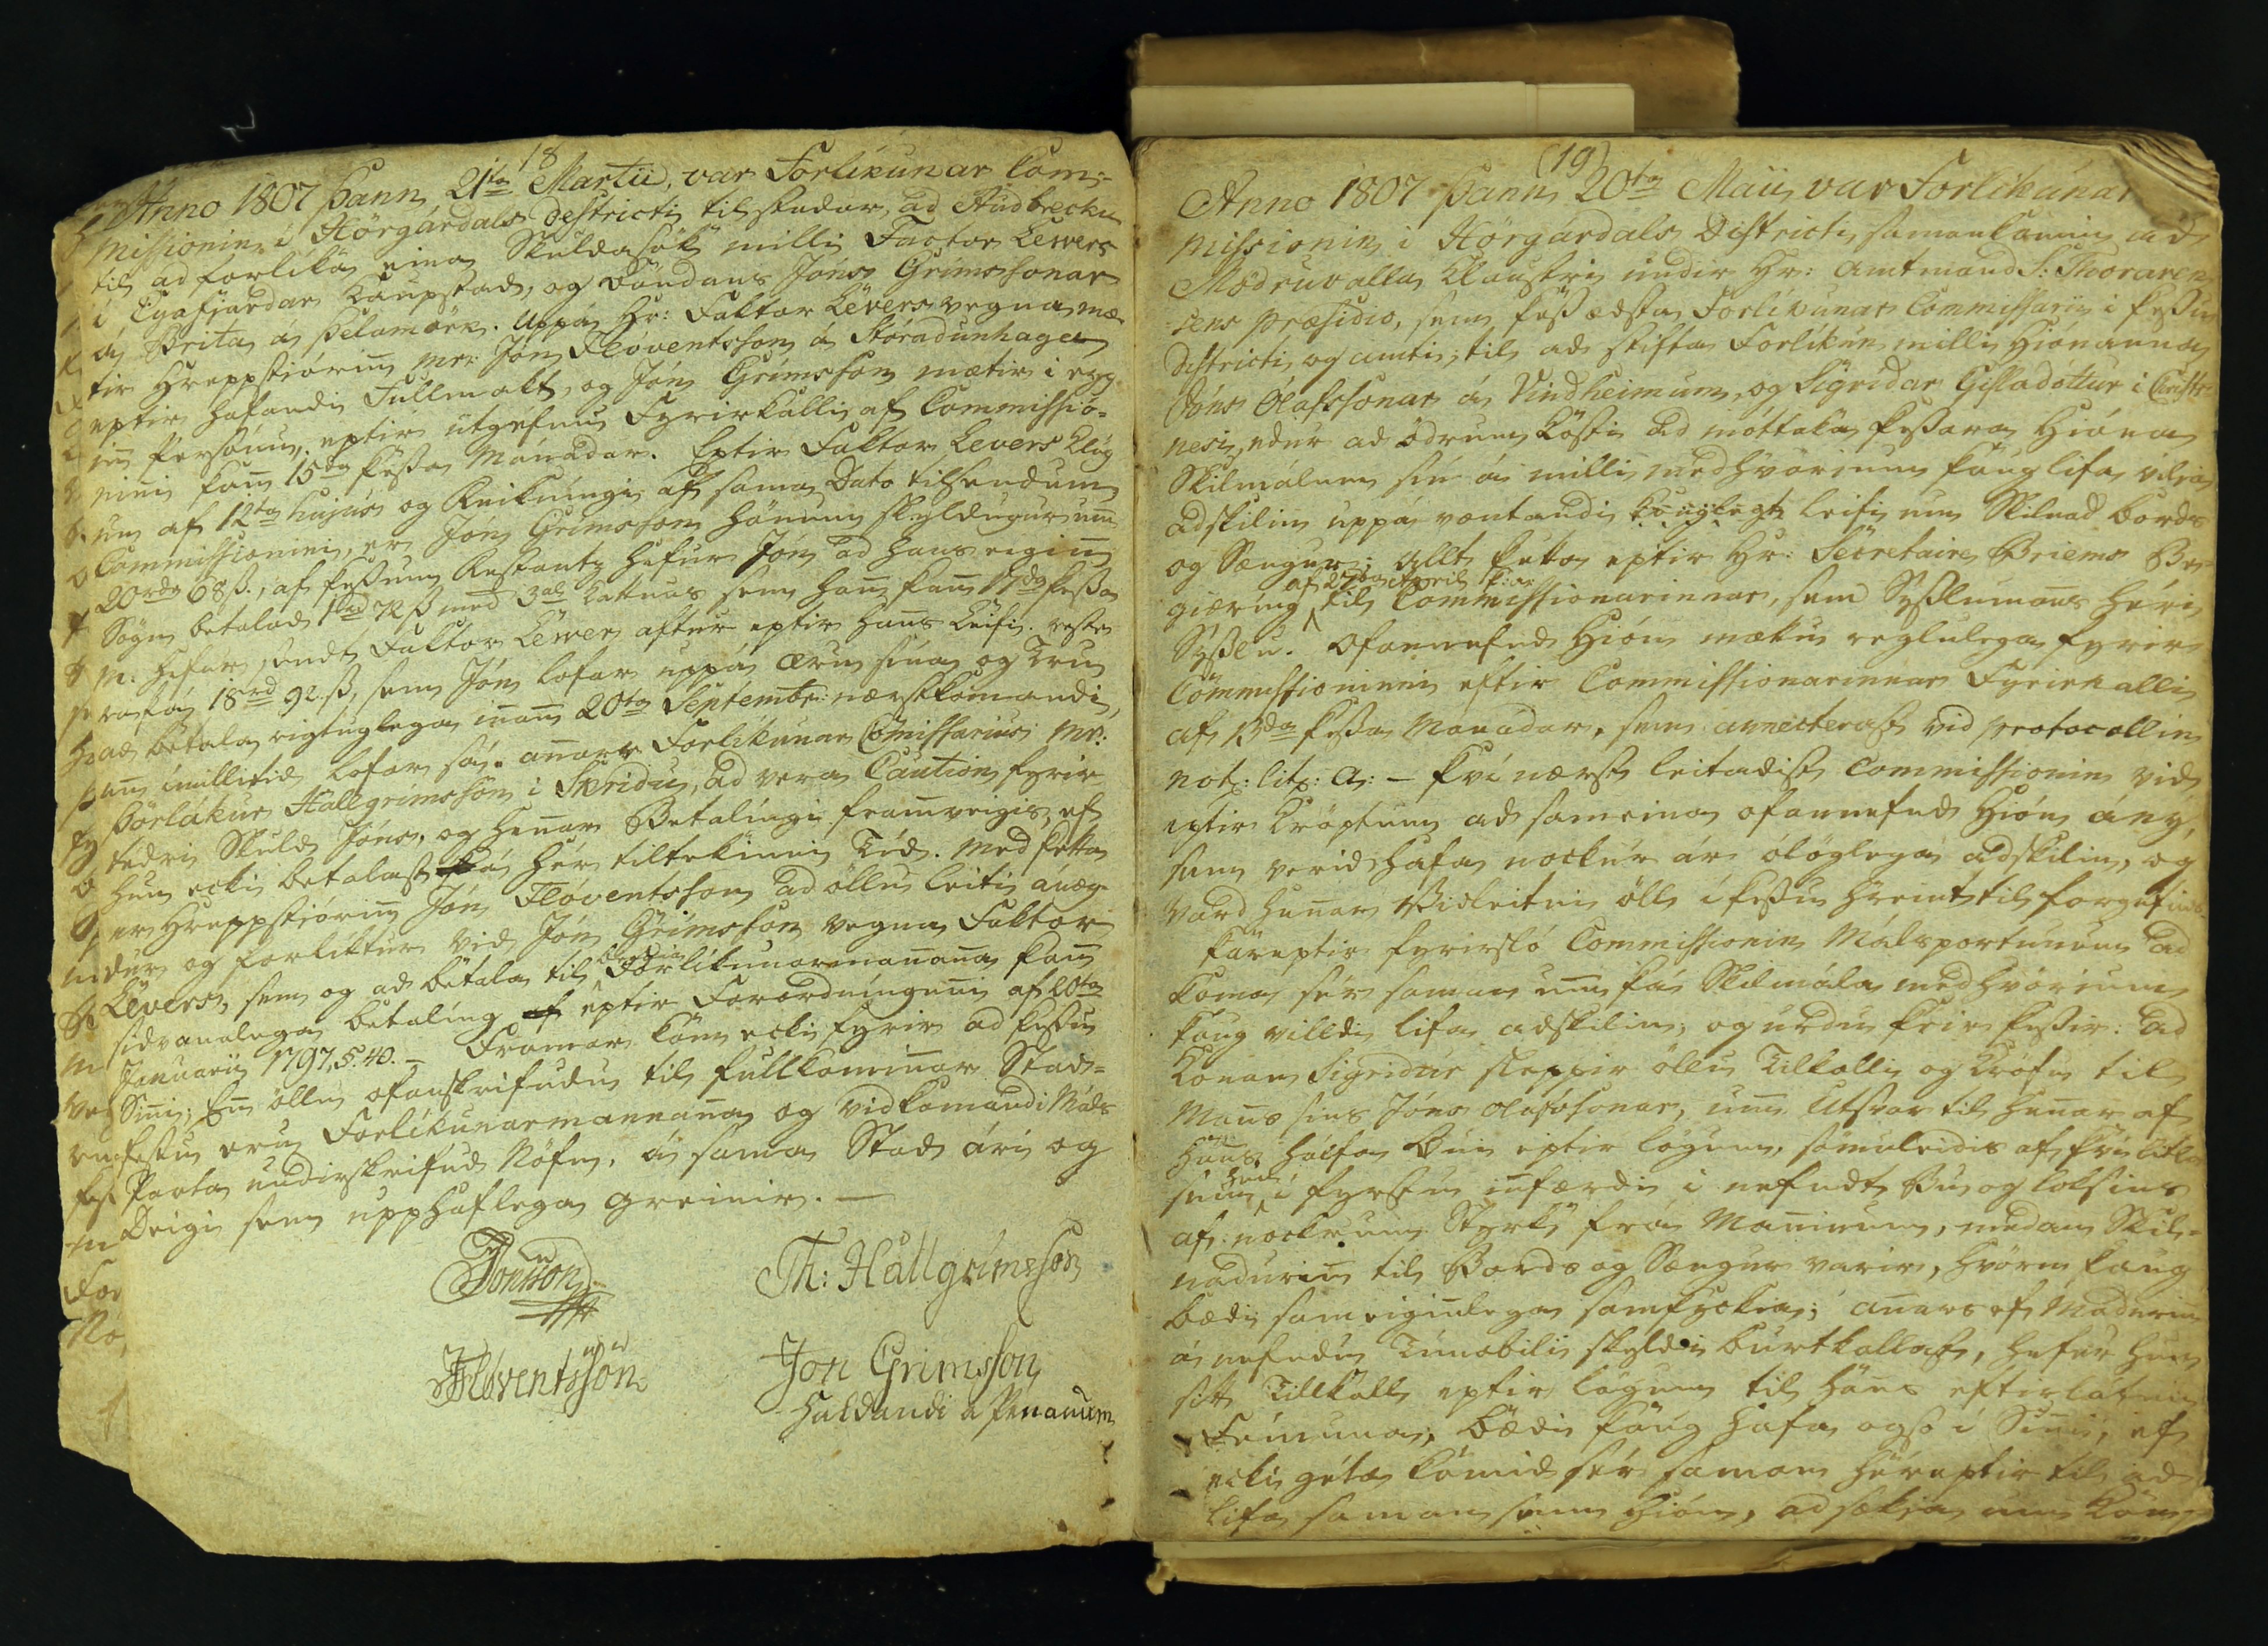 18
Anno 1807 þann 21ta Martii, var Forlikunar Com-
missionin i Hörgárdals districti tilstadar, ad Audbrecku
til ad forlika eina Skuldasök milli Factor Lewers
i Eyafjardar Kaupstad, og Bóndans Jóns Grimssonar
á Brita á þelamörk. Uppá Hr: Faktor Lëvers vegna mæ-
tir Hreppstiórin Mr: Jón Floventsson á Stóradunhaga
eptir hafandi Fullmakt, og Jón Grimsson mætir i eig-
in Persónu, eptir utgefnu Fyrirkalli af Commissio-
nini þan 15da þessa Mánadar. Eptir Faktor Levers Klög-
un af 12ta hujus og Reikningi af sama Dato tilsendum
Commissionini, er Jón Grimsson hönum skyldugur um
20rd 68ß., af þessum Restants hefur Jón ad hans eigin
Sögn betalad 1rd 72ß med 3al Kattuns sem han þan 17da þessa
M. hefur sendt Faktor Lëver aftur eptir hans Leifi. restera
þá 18rd 92.ß, sem Jón lofar uppá æru sina og Tru
ad betala rigtuglega inan 20ta Septembr: næstkomandi,
imillitid lofar sá anar Forlikunar Comissarius Mr:
þorlákur Hallgrimsson i Skridu, ad vera Caution fyrir
tedri Skuld Jóns, og henar Betalingi framveigis, ef
hun ecki betalast á hér tiltekinni Tid. Med þetta
er Hreppstiórin Jón Flóventsson ad öllu leiti ánæg-
dur og forliktur vid Jón Grimsson vegna Faktor
Lëvers, sem og ad betala til Forlikunarmanana þan
sidvanalega betaling eptir Forordningunni af 20ta
Januarii 1797, §. 40. – Framar kom ecki fyrir ad þessu
Sini; En öllu ofanskrifudu til fullkominar Stad-
festu eru Forlikunarmannana og vidkomandi Máls
Parta undirskrifud Nöfn, á sama Stad ári og
Deigi sem upphaflega greinir. –
Jonsson
Th: Hallgrimsson
JFlóventsson
Jon Grimsson
haldandi a Penanum

(19)
Anno 1807 þann 20ta Maii var Forlikunar
missionin i Hörgárdals Districti samankomin ad
Mödruvalla Klaustri undir Hr: Amtmand S: Thoraren-
sens Præsidio, sem þess ædsta Forlikunar Commissarii i þessu
districti og amti; til ad stifta Forlikun milli Hiónanna
Jóns Olafssonar á Vindheimum, og Sigridar Gisladottur i Christ-
nesi, edur ad ödrum kosti ad móttaka þessara Hióna
Skilmálum sin á milli med hvörium þaug lifa vilia
adskilin uppá væntandi konglegt leifi um Skilnad bords
og Sængur; Allt þetta eptir Hr: Secretaire Briems Be-
giæring af 27da April þ: á: til Commissionarinnar, sem Sysslumans hér i
Syslu. Ofannefnd Hión mættu reglulega fyrir
Commissioninni eftir Commissionarinnar Fyrirkalli
af 13da þessa Manadar, sem annecteradist vid protocollin
not: litr: A: – því næst leitadist Commissionin vid
eptir Kröptum ad sameina ofannefnd Hión á ný,
sem verid hafa nockur ár ólöglega adskilin, og
vard henar Vidleitni öll i þessu hreint til forgefins.
Þareptir fyrirsló Commissionin Málspörtunum ad
koma sér saman um þá Skilmála med hvörium
þaug villdi lifa adskilin, og urdu þeir þessir: ad
Konan Sigridur sleppir öllu Tilkalli og Kröfu til
Mans sins Jóns Olafssonar, um Utsvar til henar af
hans hálfa Búi eptir lögum, sömuleidis af því litla
sem hun i fyrstu infærdi i nefndt Bu og loksins
af nockrum Styrk frá Maninum, medan Skil-
nadurin til Bords og Sængur varir, hvörn þaug
bædi sameiginlega samþyckia; anars ef Madurin
á nefndu Timabili skyldi burtkallast, hefur hun
sitt Tillkall eptir lögum til hans eftirlátnu
Fémuna; bædi þaug hafa og so i Sini, ef
ecki géta komid sér saman héreptir til ad
lifa saman sem Hión, ad sækia um Kon-